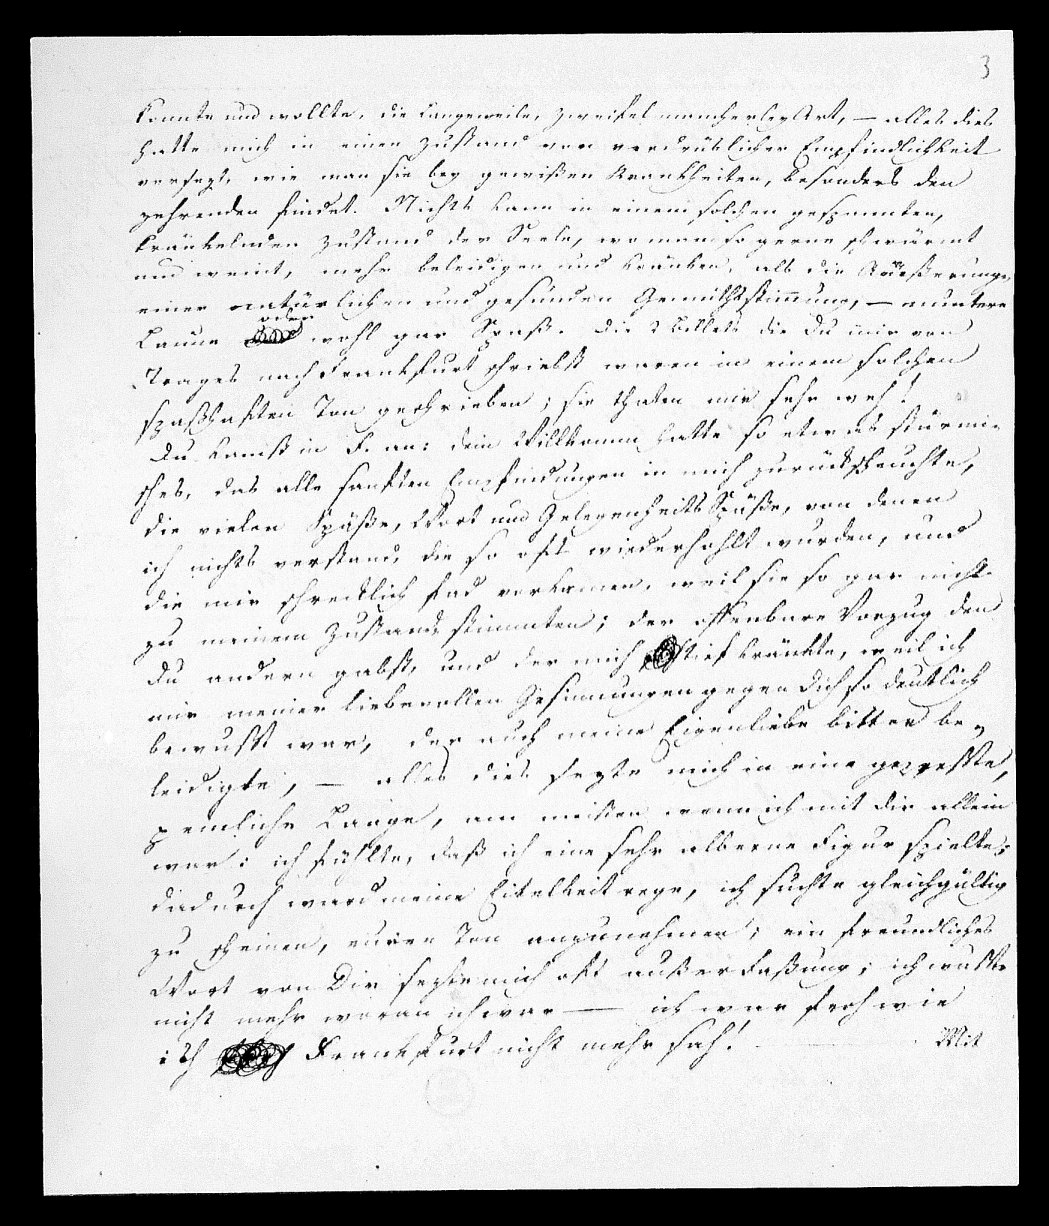 3
konnte und wollte, die Langeweile, Zweifel mancherley Art, — alles dies
hatte mich in einen Zustand von verdrüblicher Empfindlichkeit
versezt, wie man sie bey gewißen Krankheiten, besonders den
zehrenden findet. Nichts kann in einem solchen gespannten,
kränkelnden Zustand der Seele, wo man so gerne schwärmt
und weint, mehr beleidigen und kränken, als die Aeußerungen
einer natürlichen und gesunden Gemüthsstimmung, — muntere
Laune oder wohl gar Spaß. Die 2 Billets die Du mir von
Trages nach Frankfurt schriebst waren in einem solchen
spaßhaften Ton geschrieben; sie thaten mir sehr weh!
Du kamst in F. an: dein Willkomm hatte so etwas stürmi-
sches, das alle sanften Empfindungen in mich zurückscheuchte,
die vielen Späße, Wort und Gelegenheits Späße, von denen
ich nichts verstand, die so oft wiederhohlt wurden, und
die mir schrecklich fad vorkamen, weil sie so gar nicht
zu meinem Zustande stimmten; der offenbare Vorzug den
Du andern gabst, und der mich tief kränkte, weil ich
mir meiner liebevollen Gesinnungen gegen Dich so deutlich
bewußt war, der auch meine Eigenliebe bitter be-
leidigte, — alles dies sezte mich in eine gepreßte,
peinliche Laage, am meisten wenn ich mit dir allein
war: ich fühlte, daß ich eine sehr alberne Figur spielte;
dadurch ward meine Eitelkeit rege, ich suchte gleichgültig
zu scheinen, euren Ton anzunehmen; ein freundliches
Wort von Dir sezte mich oft außer Faßung; ich wußte
nicht mehr woran ich war — ich war froh wie
ich Frankfurt nicht mehr sah! Mit